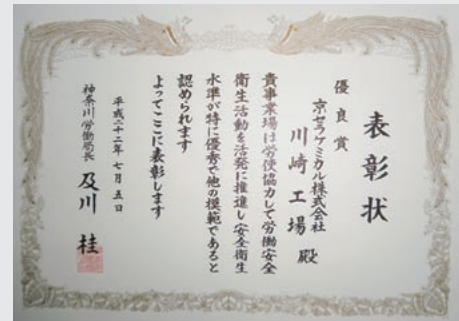 表彰状
優良賞
京セラケミカル株式会社
川崎工場 殿
貴事業場は労使協力して労働安全
衛生活動を活発に推進し安全衛生
水準が特に優秀で他の模範であると
認められます
よってここに表彰します
平成二十二年七月五日
神奈川労働局長 及川 桂